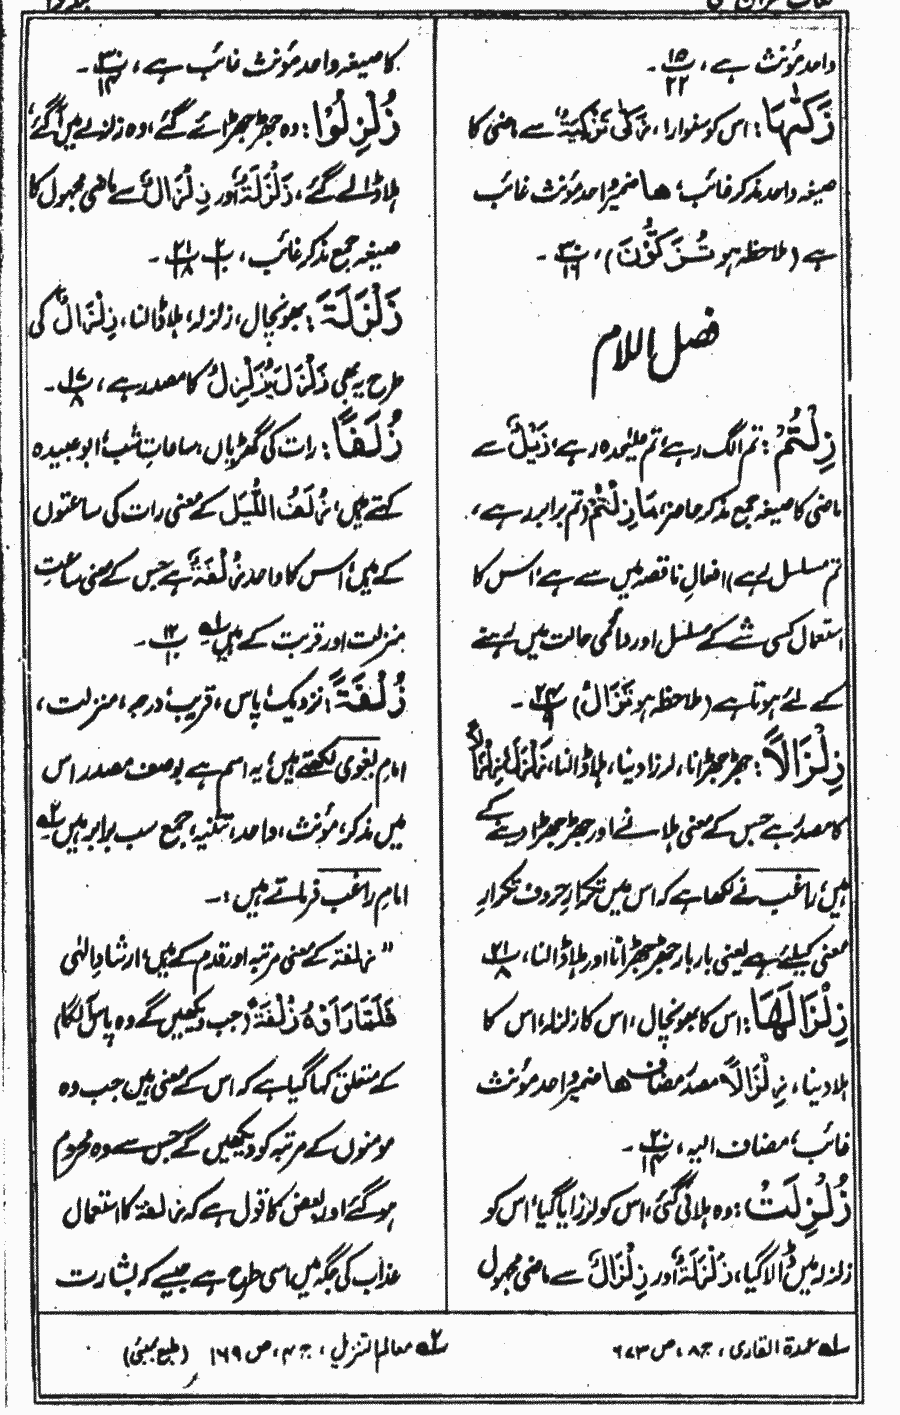 واحد مؤنث ہے، ۱۵/۲۲۔
زَكّٰہَا: اس کو سنوارا، زَکّٰی تَزْکِیَۃً سے ماضی کا
صیغہ واحد مذکر غائب، ھا ضمیر واحد مؤنث غائب
ہے (ملاحظہ ہو تُزَکُّوْنَ)، ۳۰/۱۶۔
فصل اللام
زِلْتُمْ: تم الگ رہے، تم علیٰحدہ رہے، زَیْلٌ سے
ماضی کا صیغہ جمع مذکر حاضر، مَا زِلْتُمْ (تم برابر رہے،
تم مسلسل رہے) افعالِ ناقصہ میں سے ہے، اس کا
استعمال کسی شے کے مسلسل اور دائمی حالت میں رہنے
کے لئے ہوتا ہے (ملاحظہ ہو تَزَالُ) ۲۴/۹۔
زِلْزَالًا: جھڑجھڑانا، لرزا دینا، ہلا ڈالنا، زَلْزَلَ یُزَلْزِلُ
کا مصدر ہے جس کے معنی ہلانے اور جھڑجھڑا دینے کے
ہیں، راغب نے لکھا ہے کہ اس میں تکرارِ حروف تکرارِ
معنی کیلئے ہے یعنی بار بار جھڑجھڑانا اور ہلا ڈالنا، ۲۱/۸۔
زِلْزَالَھَا: اس کا بھونچال، اس کا زلزلہ، اس کا
ہلا دینا، زِلْزَالًا مصدر مضاف ھا ضمیر واحد مؤنث
غائب، مضاف الیہ، ۳۰/۱۴۔
زُلْزِلَتْ: وہ ہلائی گئی، اس کو لرزایا گیا، اس کو
زلزلہ میں ڈالا گیا، زَلْزَلَۃٌ اور زِلْزَالٌ سے ماضی مجہول
کا صیغہ واحد مؤنث غائب ہے، ۳۰/۱۴۔
زُلْزِلُوْا: وہ جھڑجھڑائے گئے، وہ زلزلے میں آگئے،
ہلا ڈالے گئے، زَلْزَلَۃٌ اور زِلْزَالٌ سے ماضی مجہول کا
صیغہ جمع مذکر غائب، ۲/۱۰ ۲۱/۱۸۔
زَلْزَلَۃَ: بھونچال، زلزلہ، ہلا ڈالنا، زِلْزَالٌ کی
طرح یہ بھی زَلْزَلَ یُزَلْزِلُ کا مصدر ہے، ۱۷/۸۔
زُلَفًا: رات کی گھڑیاں، ساعاتِ شب، ابو عبیدہ
کہتے ہیں، زُلَفُ اللَّیْلِ کے معنی رات کی ساعتوں
کے ہیں، اس کا واحد زُلْفَۃٌ ہے جس کے معنی ساعت،
منزلت اور قربت کے ہیں ۱ ۱۲/۱۰۔
زُلْفَۃً: نزدیک، پاس، قریب، درجہ، منزلت،
امام بغوی لکھتے ہیں، یہ اسم ہے بوصف مصدر اس
میں مذکر، مؤنث، واحد، تثنیہ، جمع سب برابر ہیں ۲۔
امام راغب فرماتے ہیں:۔
”زلفۃ کے معنی مرتبہ اور قدم کے ہیں، ارشادِ الٰہی
فَلَمَّا رَاَوْہُ زُلْفَۃً (جب دیکھیں گے وہ پاس آ لگا)
کے متعلق کہا گیا ہے کہ اس کے معنی ہیں جب وہ
مومنوں کے مرتبہ کو دیکھیں گے جس سے وہ محروم
ہو گئے اور بعض کا قول ہے کہ زلفۃ کا استعمال
عذاب کی جگہ میں اسی طرح ہے جیسے کہ بشارت
۱ عمدۃ القاری، ج ۸، ص ۶۷۳
۲ معالم التنزیل، ج ۴، ص ۱۶۹ (طبع بمبئی)